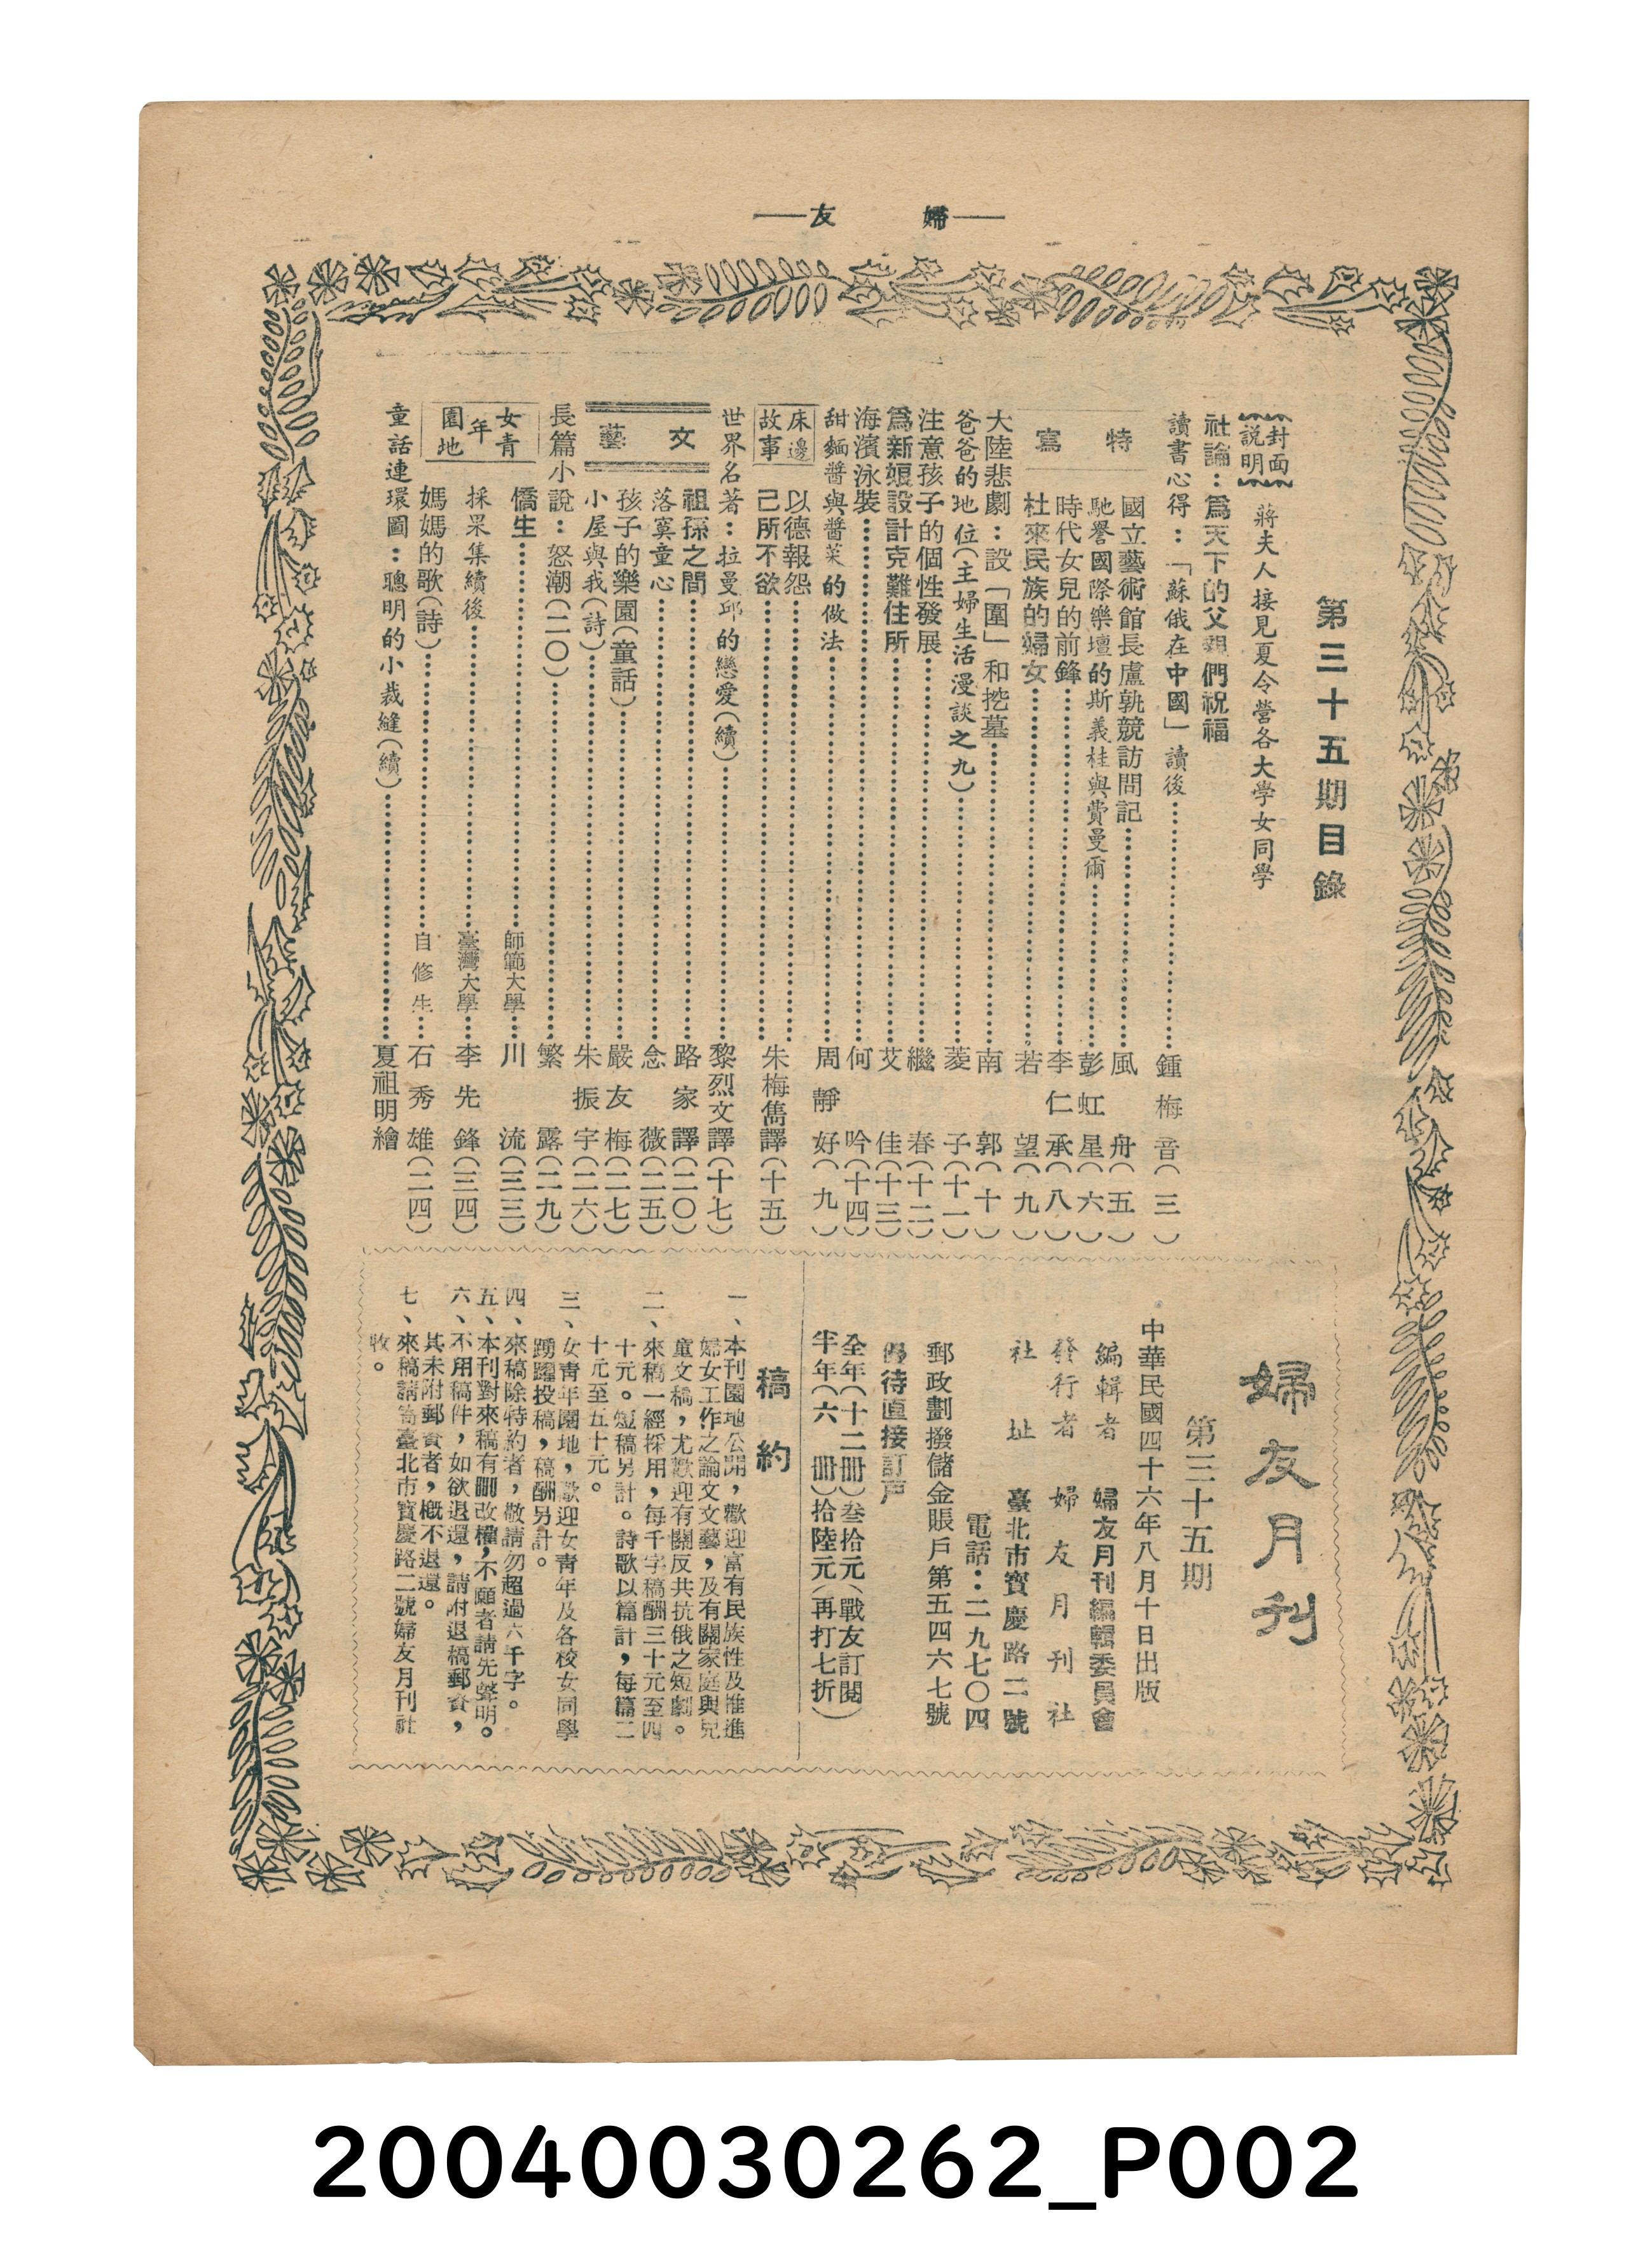 婦友
第三十五期目錄
封面說明 蔣夫人接見夏令營各大學女同學
社論：爲天下的父親們祝福
讀書心得：「蘇俄在中國」讀後……鍾梅音（三）
特寫
國立藝術館長盧毓競訪問記……風舟（五）
馳譽國際樂壇的斯義桂與費曼爾……彭虹星（六）
時代女兒的前鋒……李仁承（八）
杜來民族的婦女……若望（九）
大陸悲劇：設「圍」和挖墓……南郭（十）
爸爸的地位（主婦生活漫談之九）……菱子（十一）
注意孩子的個性發展……繼春（十二）
爲新娘設計克難住所……艾佳（十三）
海濱泳裝……何吟（十四）
甜麵醬與醬菜的做法……周靜好（九）
床邊故事
以德報怨……
己所不欲……
朱梅雋譯（十五）
世界名著：拉曼邱的戀愛（續）……黎烈文譯（十七）
文藝
祖孫之間……路家譯（二〇）
落寞童心……念薇（二五）
孩子的樂園（童話）……嚴友梅（二七）
小屋與我（詩）……朱振宇（二六）
長篇小說：怒潮（二〇）……繁露（二九）
女青年園地
僑生……師範大學……川流（三三）
採果集續後……臺灣大學……李先鋒（三四）
媽媽的歌（詩）……自修生……石秀雄（二四）
童話連環圖：聰明的小裁縫（續）……夏祖明繪
婦友月刊
第三十五期
中華民國四十六年八月十日出版
編輯者 婦友月刊編輯委員會
發行者 婦友月刊社
社址 臺北市寶慶路二號
電話：二九七〇四
郵政劃撥儲金賬戶第五四六七號
優待直接訂戶
全年（十二冊）叁拾元（戰友訂閱
半年（六 冊）拾陸元（再打七折）
稿約
一、本刊園地公開，歡迎富有民族性及推進
婦女工作之論文文藝，及有關家庭與兒
童文稿，尤歡迎有關反共抗俄之短劇。
二、來稿一經採用，每千字稿酬三十元至四
十元。短稿另計。詩歌以篇計，每篇二
十元至五十元。
三、女靑年園地，歡迎女靑年及各校女同學
踴躍投稿，稿酬另計。
四、來稿除特約者，敬請勿超過六千字。
五、本刊對來稿有刪改權，不願者請先聲明。
六、不用稿件，如欲退還，請附退稿郵資，
其未附郵資者，概不退還。
七、來稿請寄臺北市寶慶路二號婦友月刊社
收。
20040030262_P002